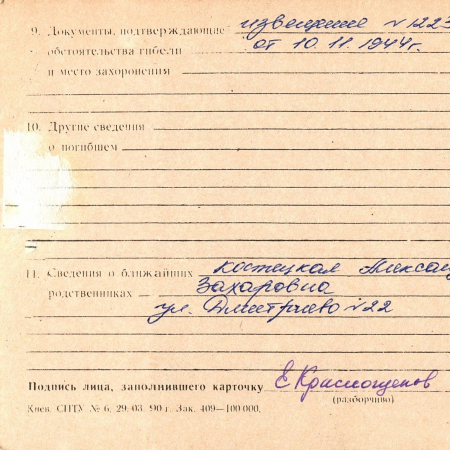 9. Документы, подтверждающие извещение №1223
обстоятельства гибели от 10.11.1944г.
и место захоронения
10. Другие сведения
о погибшем
11. Сведения о ближайших Костецкая Алексан
родственниках Захаровна
ул. Дмитриево №22
Подпись лица, заполнившего карточку Е Краснощеков
(разборчиво)
Киев. СПТУ № 6, 29. 03. 90 г. Зак. 409—100 000.